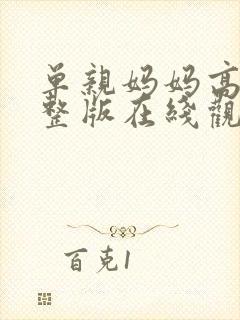 单親妈妈高
整版在綫觀
百克1